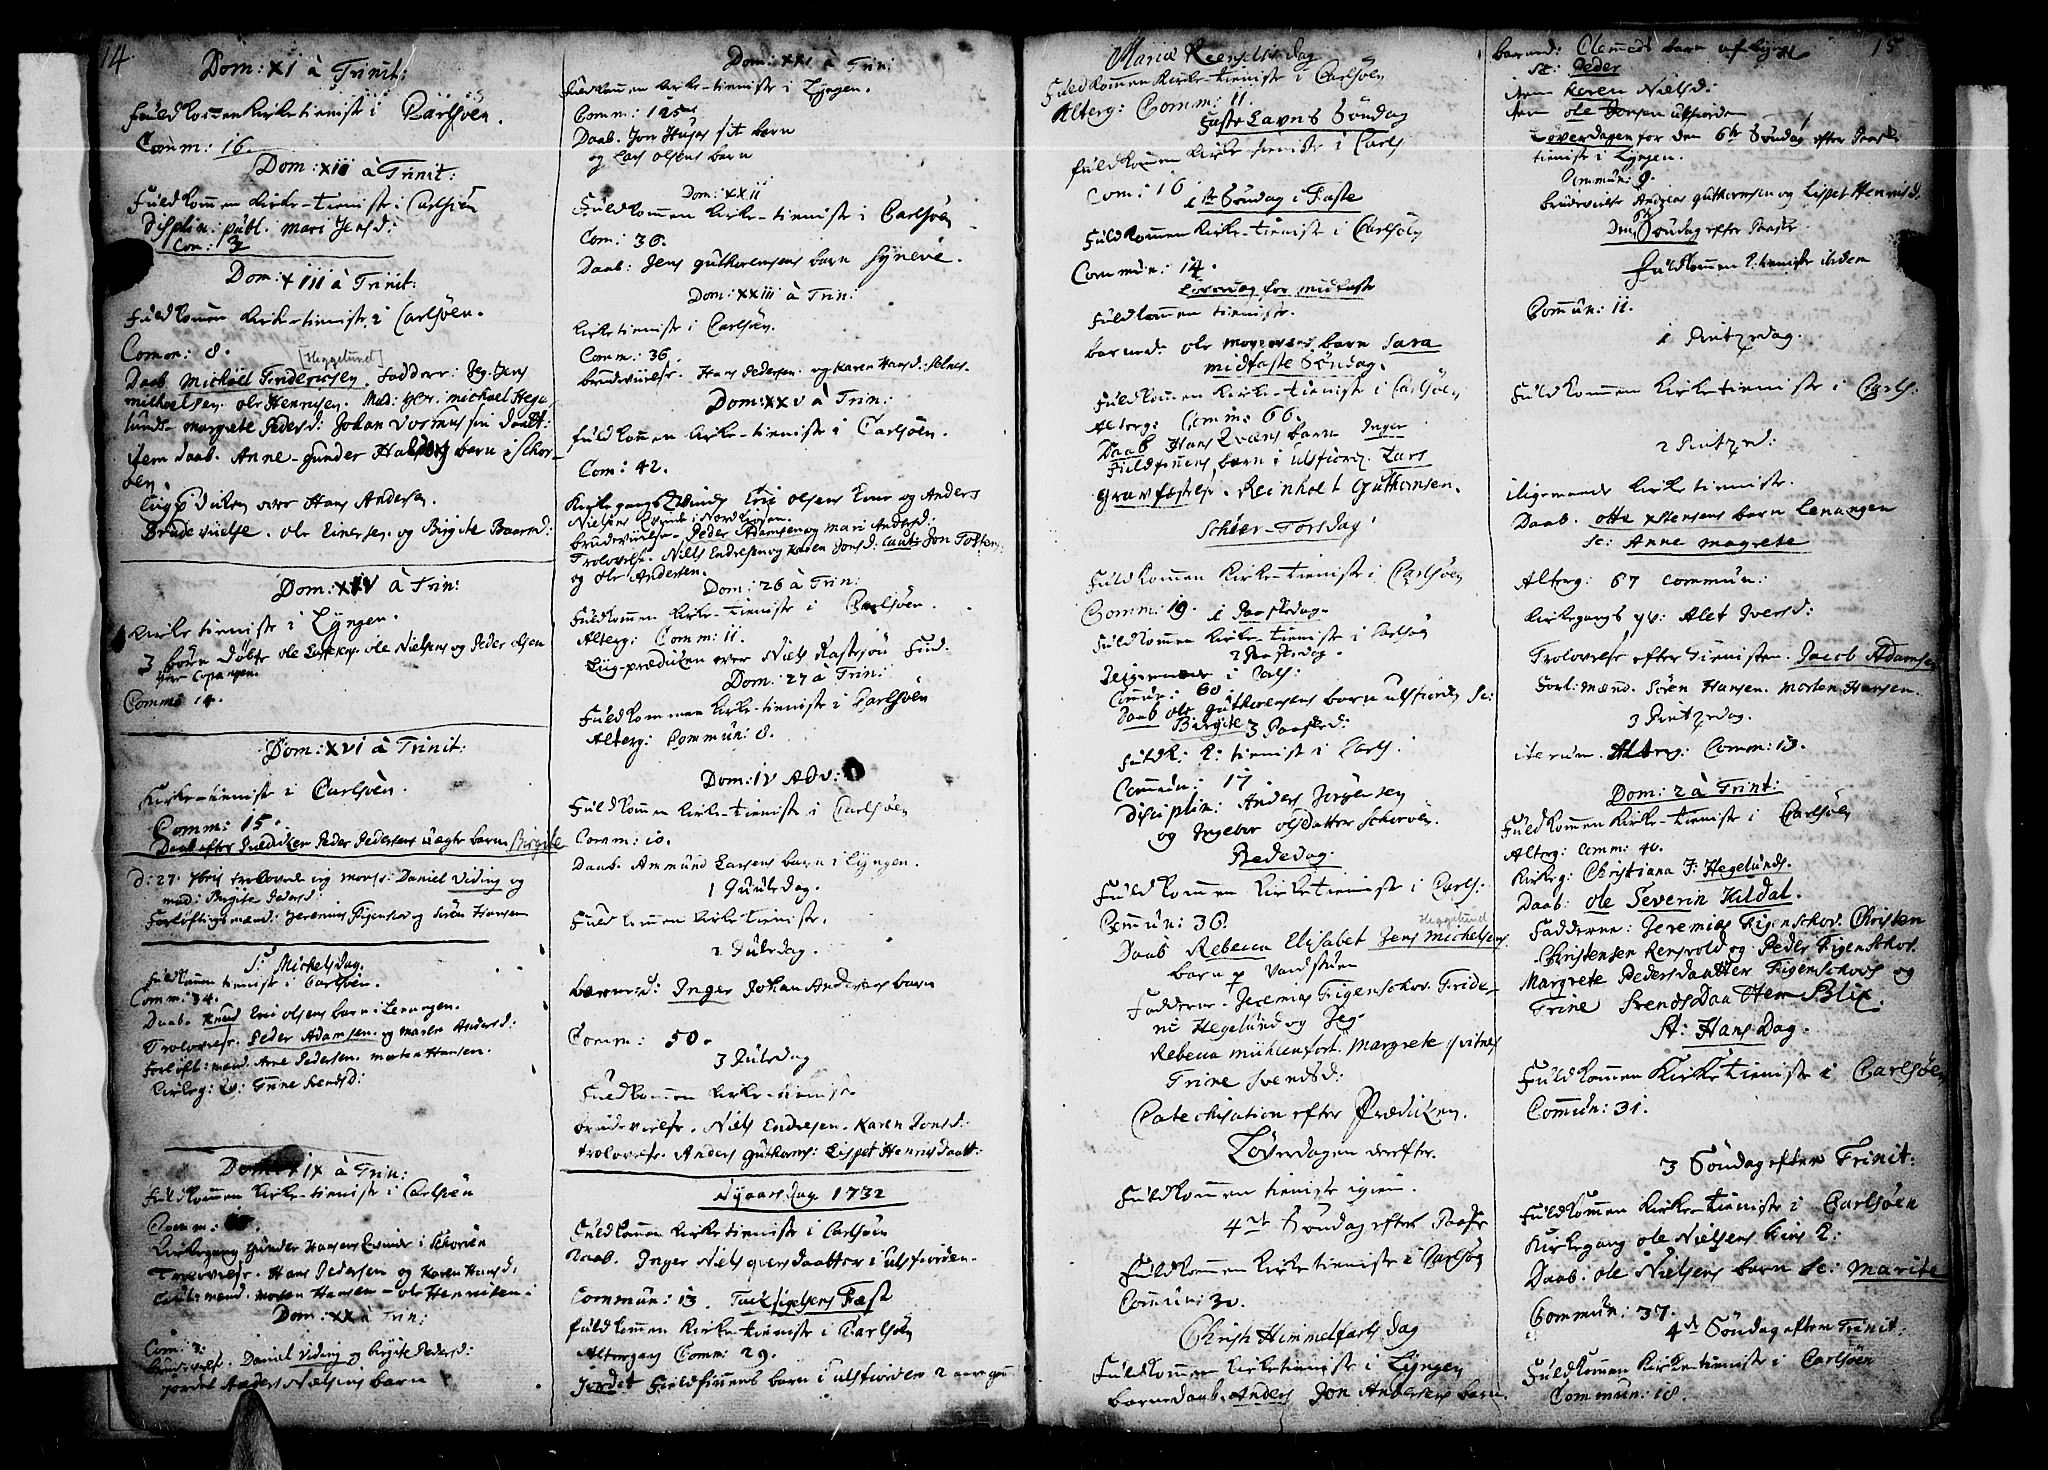 14.
Dom: XI à Trinit:
Fuldkommen Kirketieniste i Carlsöen.
Comm: 16.
Dom: XII à Trinit:
Fuldkommen Kirke-tieniste i Carlsöen
Disciplin: publ. Mari Jensd:
Com: 3
Dom: XIII à Trinit:
Fuldkommen Kirke-tieniste i Carlsöen.
Comm: 8.
[Heggelund]
Daab Michael Friderichsen. Faddere: Jeg. Jens
Michelsen. Ole Henricsen. Mad: Michael Hege
lunds Margrete Pedersd: Johan
item daab. Anne-Gunder barn i Schor-
öen.
Liigprediken over Hans Andersen.
Brudevielse. Ole Einersen. og Birgite Baarsd:
Dom: XIV à Trin:
Kirke tieniste i Lyngen.
3 börn döbte Ole Ole Nielsens og Peder Olsen
Comm: 14.
Dom: XVI à Trinit:
Kirke-tieniste i Carlsöen.
Comm: 15.
Daab efter Prediken Peder Pedersens uægte barn Birgite
d: 27. trolovede jeg Mons: Daniel Viding og
mad: Birgite Pedersd:
Forlöftingsmænd: Jeremias Figenschov og Sören Hansen
St. Michelsdag.
Fuldkommen tieniste i Carlsöen.
Comm: 34.
Daab. Knud Eric Olsens barn i Lenangen.
Trolovelse. Peder Adamsen og Maren Andersd:
Forlöft: mænd Arne Pedersen. Morten Hansen.
Kirkeg: Qv: Trine Svendsd:
Dom: XIX à Trin:
Fuldkommen Kirke-tieniste i Carlsöen
Comm:
Kirkegang Gunder Hansens Qvinde i Schoröen
Trolovelse. Hans Pedersen og Karen Hansd.
Caut: mænd. Morten Hansen - Ole Henricsen.
Dom: XX à Trin:
Com: 3:
Brudevielse. Daniel Viding og Birgite Pedersd:
Jordet Anders Nielsens barn
Dom: XXI à Trin:
Fuldkommen Kirke-tieniste i Lyngen.
Comm: 125
Daab. Jon sit barn
og Lars Olsens barn
Dom: XXII
Fuldkommen Kirke-tieniste i Carlsöen
Com: 36.
Daab: Jens Guthormsens barn Syneve.
Dom: XXIII à Trin:
Kirketieniste i Carlsöen.
Comm: 36.
Brudevielse. Hans Pedersen og Karen Hansd:
Dom: XXV à Trin:
Fuldkommen Kirke-tieniste i Carlsöen.
Com: 42.
Kirkegang Qvinde Eric Olsens Qvinde og Anders
Nielsens Qvinde i
Brudevielse. Peder Adamsen og Mari Andersd:
Trolovelse. Niels Endresen og Karen Jonsd: Caut: Jon
og Ole Andersen.
Dom: 26 à Trin:
Fuldkommen Kirke-tieniste i Carlsöen.
Alterg: Comm: 11.
Liig-prædiken over Niels
Dom: 27 à Trin:
Fuldkommen Kirke-tieniste i Carlsöen
Alterg: Commun: 8.
Dom: IV Adv:
Fuldkommen Kirke-tieniste i Carlsöen
Comm: 10.
Daab. Ammund Larsens barn i Lyngen.
1 Juuledag.
Fuldkommen Kirke tieniste.
2 Juledag.
barned: Inger Johan Andersens barn
Comm: 50.
3 Juledag
Fuldkommen Kirke-tieniste
Brudevielse. Niels Endresen. Karen Jonsd:
Trolovelse. Anders Guthorms: Lispet Henricsdaatt:
Nyaarsdag 1732
Fuldkommen Kirketieniste i Carlsöen
Daab. Inger Niels daatter i Ulsfiorden.
Commun: 13. Tacksigelsens Fæst
Fuldkommen Kirke-tieniste i Carlsöen
Altergang Comm: 29.
Jordet Fieldfinnens barn i Ulsfiorden 2 aar
Mariæ Reenselsis dag
Fuldkommen Kirke-tieniste i Carlsöen
Alterg: Comm: 11.
Faste Lavns Söndag
Fuldkommen Kirke tieniste i Carls
Com: 16
1ste Söndag i Faste
Fuldkommen Kirke-tieniste i Carlsöen
Commun: 14.
Löverdag for midfaste
Fuldkommen tieniste.
barned: Ole barn Sara
Midfaste Söndag.
Fuldkommen Kirke-tieniste i Carlsöen
Alterg: Comm: 66.
Daab Hans Qvæns barn Inger
Fieldfinnens barn i Ulsfiord. Lars
Gravfæstelse. Reinholt Guthormsen.
Schier-Torsdag
Fuldkommen Kirke-tieniste i Carlsöen
Comm: 19. 1 Paaskedag.
Fuldkommen Kirke-tieniste i Carlsöen
2 Paaskedag.
i Carls:
Commun: 60
Daab Ole Guthormsens barn Ulsfiorden sc:
Birgite 3 Paasked:
Fuldk: K: tienist i Carls.
Commun: 17
Disciplin: Anders Jorgensen
og Ingebor Olsdatter Schoröen.
Bededag.
Fuldkommen Kirketieniste i Carls:
Commun: 36.
Heggelund
Daab Rebecca Elisabet Jens Michelsens
barn
Faddere. Jeremias Figenschov. Fride-
ric Hegelund og Jeg.
Rebecca Mühlenfort. Margrete
Trine Svendsd:
Catechisation efter Prædiken.
Löverdagen derefter.
Fuldkommen tieniste igien.
4de Söndag efter Paaske
Fuldkommen Kirketieniste i Carlsöen
Commun: 30.
Christi Himmelfarts dag
Fuldkommen Kirketieniste i Lyngen
barnedaab. Anders Jon Andersens barn.
15
barned: Clemeds barn af Lyngen
sc: Peder
item Karen Nielsd:
item Ole Ulsfiorden
Löverdagen for den 6te Söndag efter Paaske
tieniste i Lyngen.
Commun: 9.
Brudevielse Andreas Guthormsen og Lispet Henricsd.
Den 6te Söndag efter Paaske.
Fuldkommen K: tieniste ibidem
Commun: 11.
1 Pintzedag.
Fuldkommen Kirketieniste i Carls:
2 Pintzed:
iligemaade Kirketieniste.
Daab. Otte barn Lenangen
sc: Anne Magrete
Alterg: 67 commun:
Kirkegangs Qv: Alet Iversd:
Trolovelse efter tienisten. Jacob Adamsen
Forl: mænd. Sören Hansen. Morten Hansen.
3 Pintzedag.
iterum. Alterg: Comm: 13.
Dom: 2 à Trinit:
Fuldkommen Kirke-tieniste i Carlsöen
Alterg: Comm: 40.
Kirkeg: Christiana F: Hegelunds.
Daab: Ole Severin Hildal.
Fadderne: Jeremias Figenschov. Christen
Christensen Rensvold og Peder Figenschov.
Margrete Pedersdaatter Figenschovs og
Trine Svendsdaatter Blix.
St: Hans Dag.
Fuldkommen Kirketieniste i Carlsöen
Commun: 31.
3 Söndag efter Trinit:
Fuldkommen Kirke-tieniste i Carlsöen
Kirkegang Ole Nielsens
Daab. Ole Nielsens barn sc: Marite
Commun: 37.
4de Söndag efter Trinit:
Fuldkommen Kirketieniste i Carlsöen
Commun: 18.